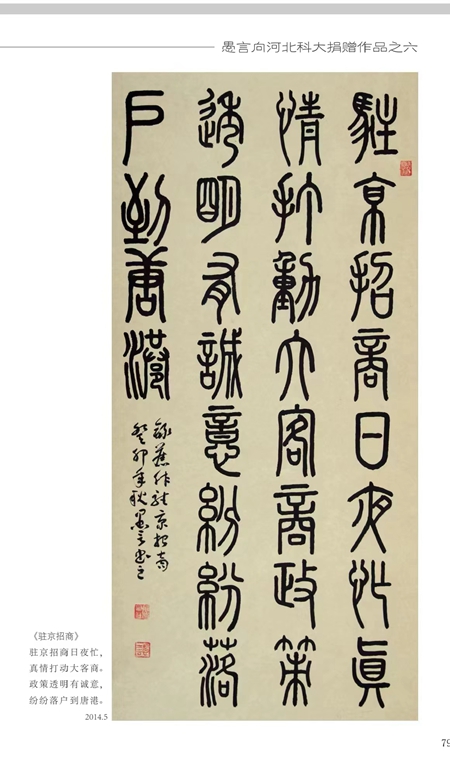 愚言向河北科大捐赠作品之六
駐京招商日夜忙真
情打動大客商政策
透明有誠意紛紛落
戶到唐港
錄舊作駐京招商
癸卯年秋愚言書之
《驻京招商》
驻京招商日夜忙，
真情打动大客商。
政策透明有诚意，
纷纷落户到唐港。
2014.5
79